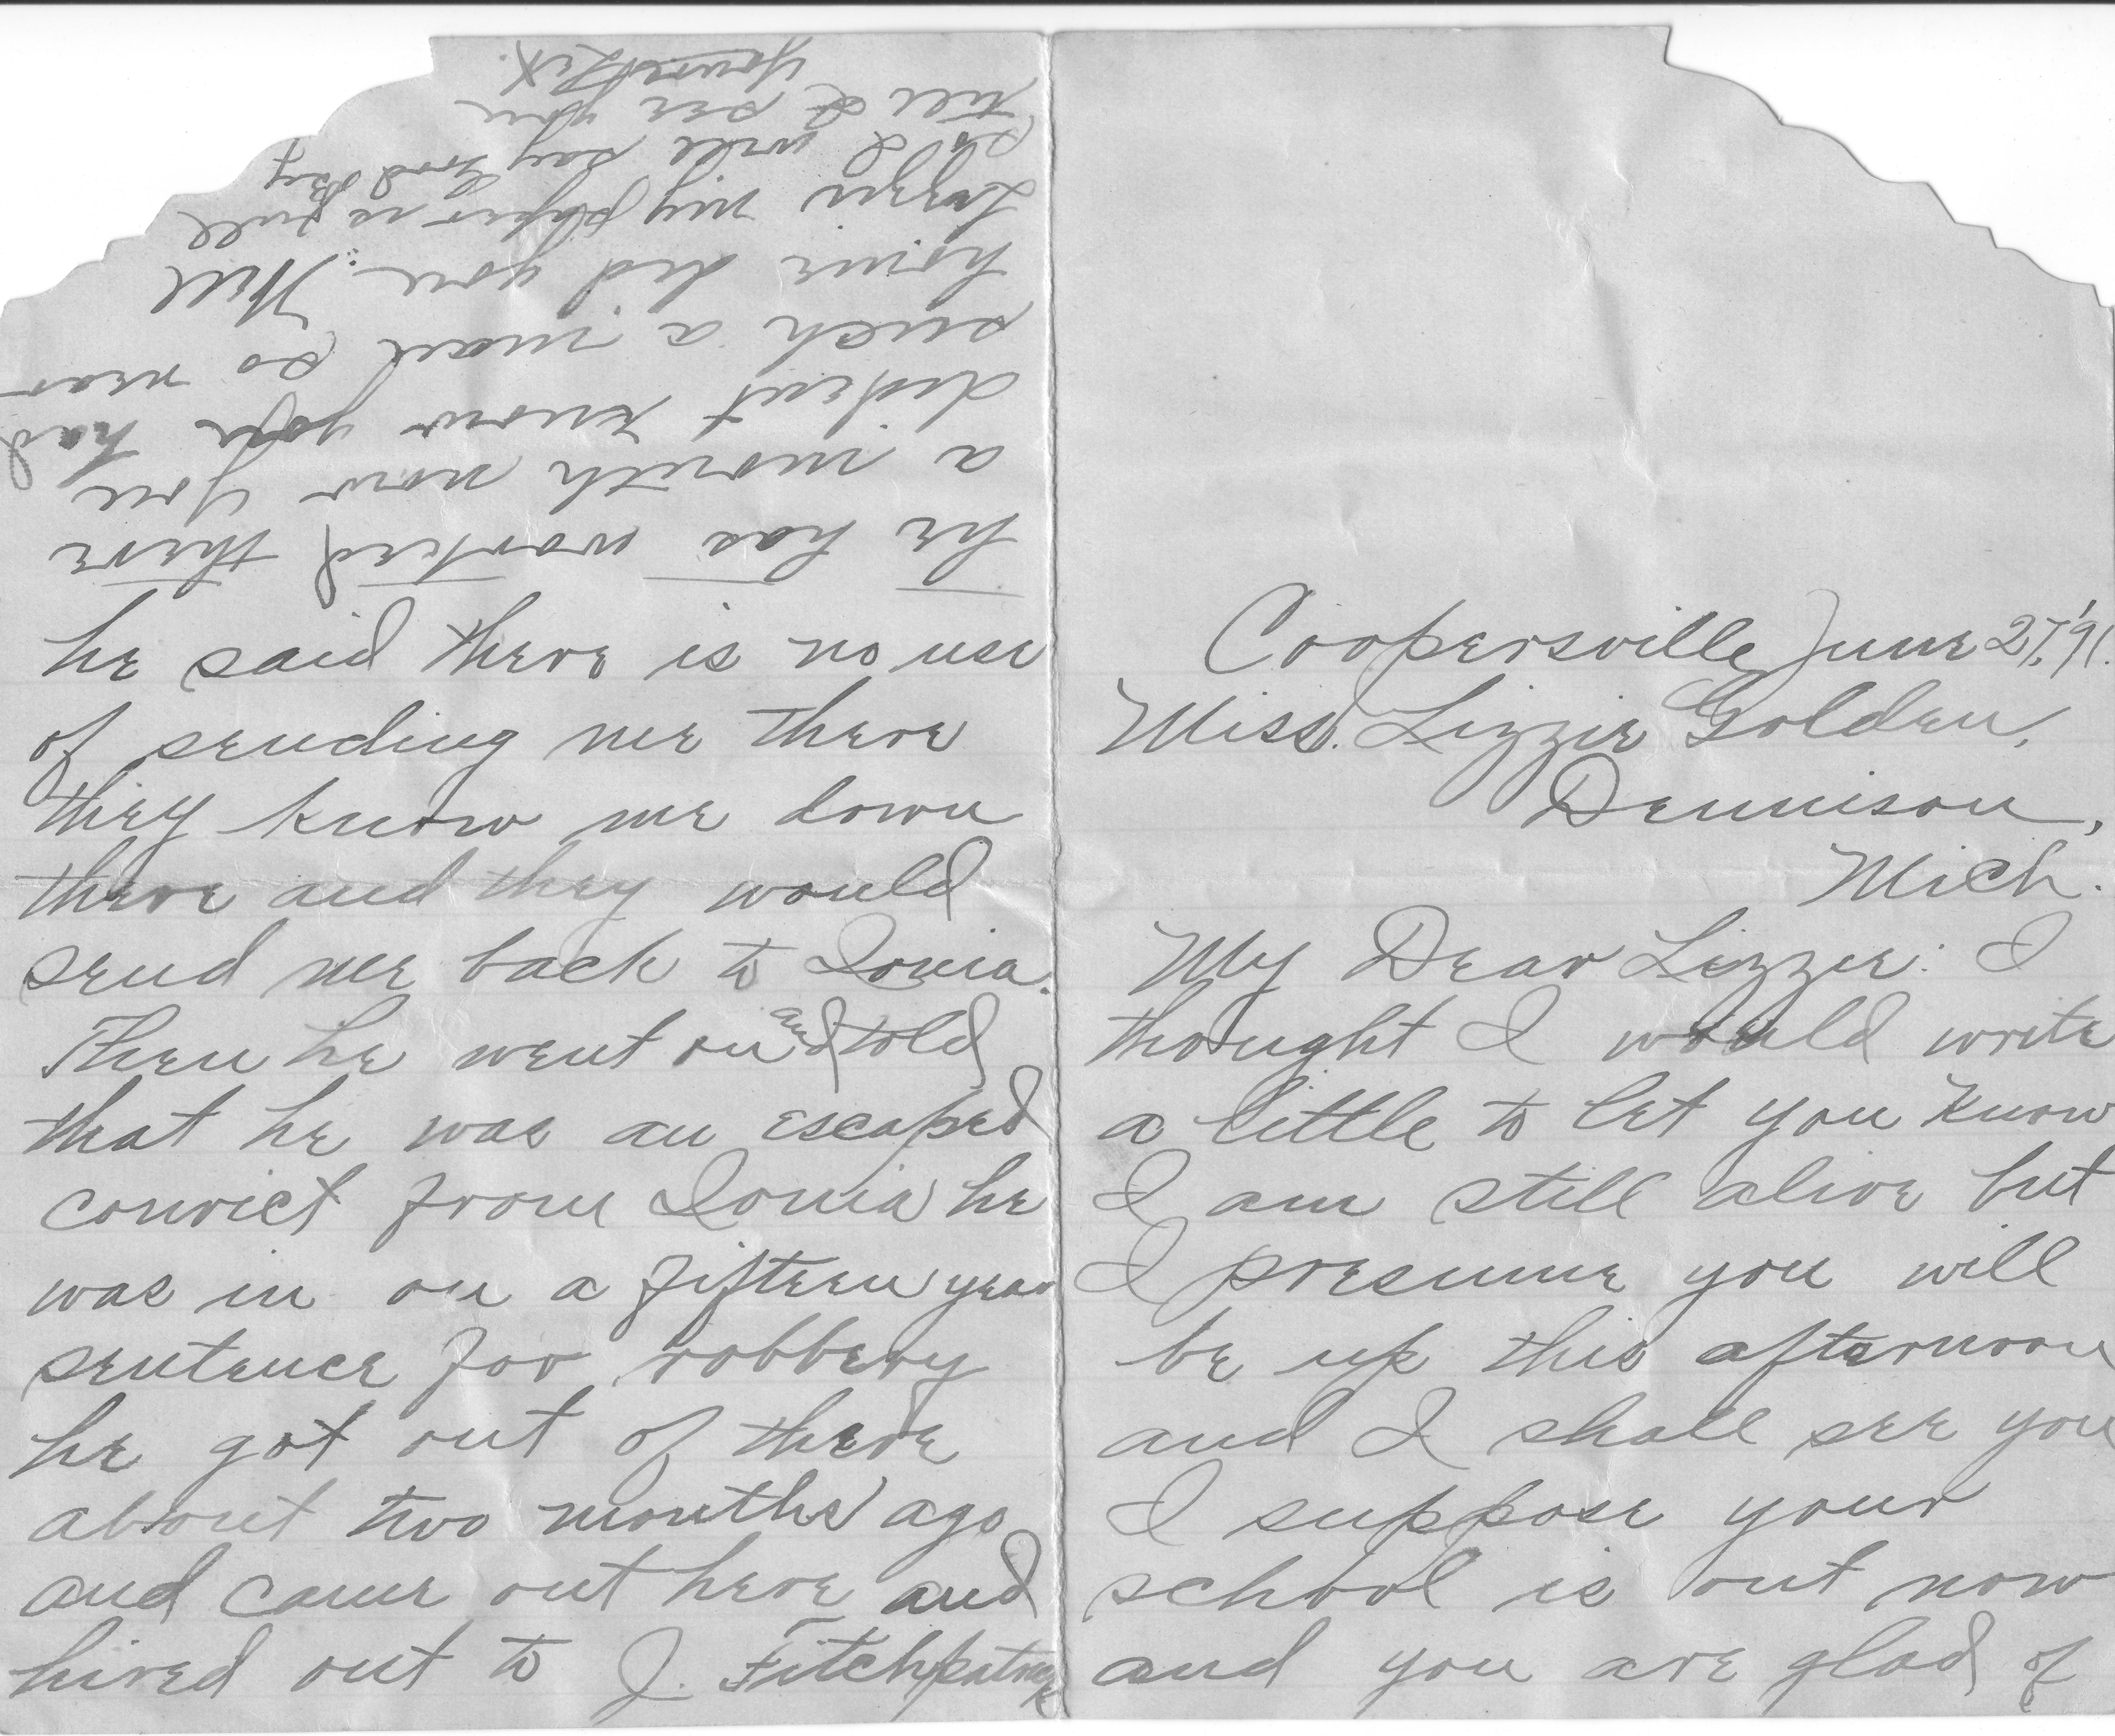 Coopersville June 27, '91.
Miss. Lizzie Golden,
Dennison,
Mich.
My Dear Lizzie: I
thought I would write
a little to let you know
I am still alive but
I presume you will
be up this afternoon
and I shall see you
I suppose your
school is out now
and you are glad of
he said there is no use
of sending me there
they know me down
there and they would
send me back to Ionia.
Then he went on and told
that he was an escaped
convict from Ionia he
was in on a fifteen year
sentence for robbery
he got out of there
about two months ago
and came out here and
hired out to J. Fitchpatrick
he has worked there
a month now you
dident know you had
such a man so near
home did you. Well
Lizzie my paper is full
so I will say Good Bye
till I see you
Yours Lex.